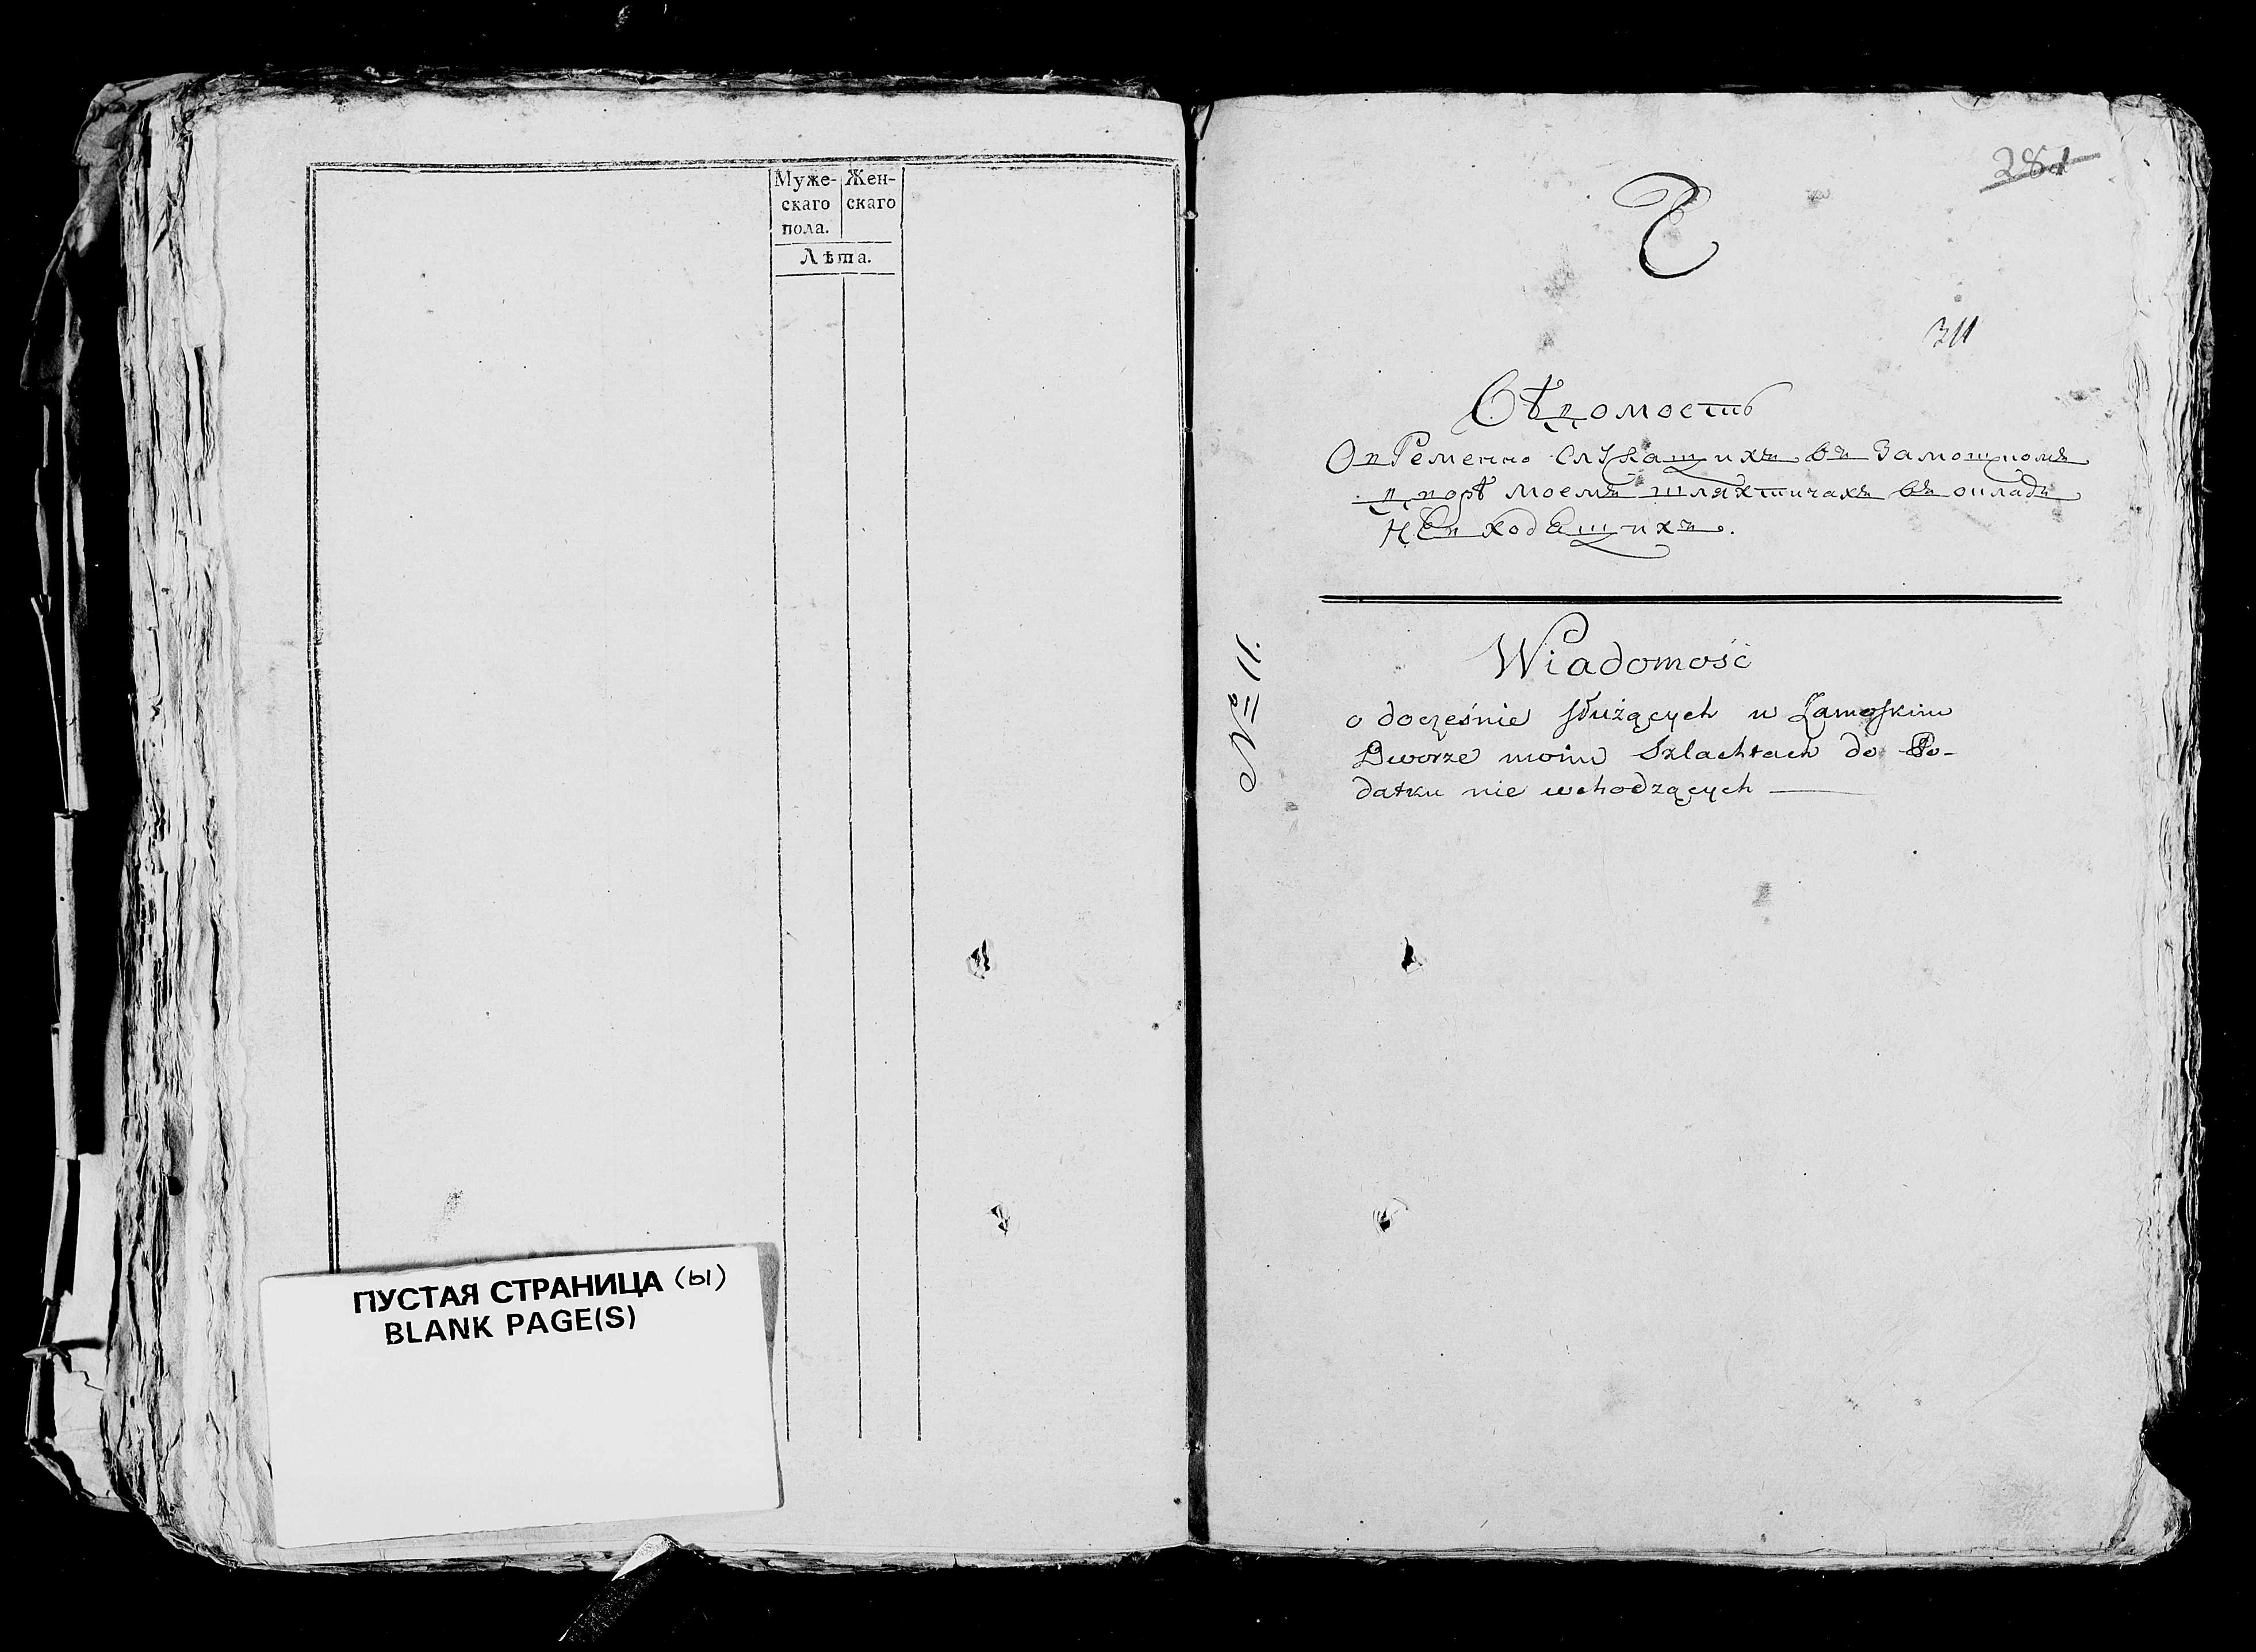 Муже-
скаго
пола.
Жен-
скаго
Лѣта.
ПУСТАЯ СТРАНИЦА (ы)
BLANK PAGE(S)
281
311
Вѣдомость
О временно служащихъ въ Замошскомъ
дворѣ моемъ шляхтичахъ въ окладъ
не входящихъ.
№ 11.
Wiadomość
o docześnie służących w Zamoskim
Dworze moim Szlachtach do Po-
datku nie wchodzących